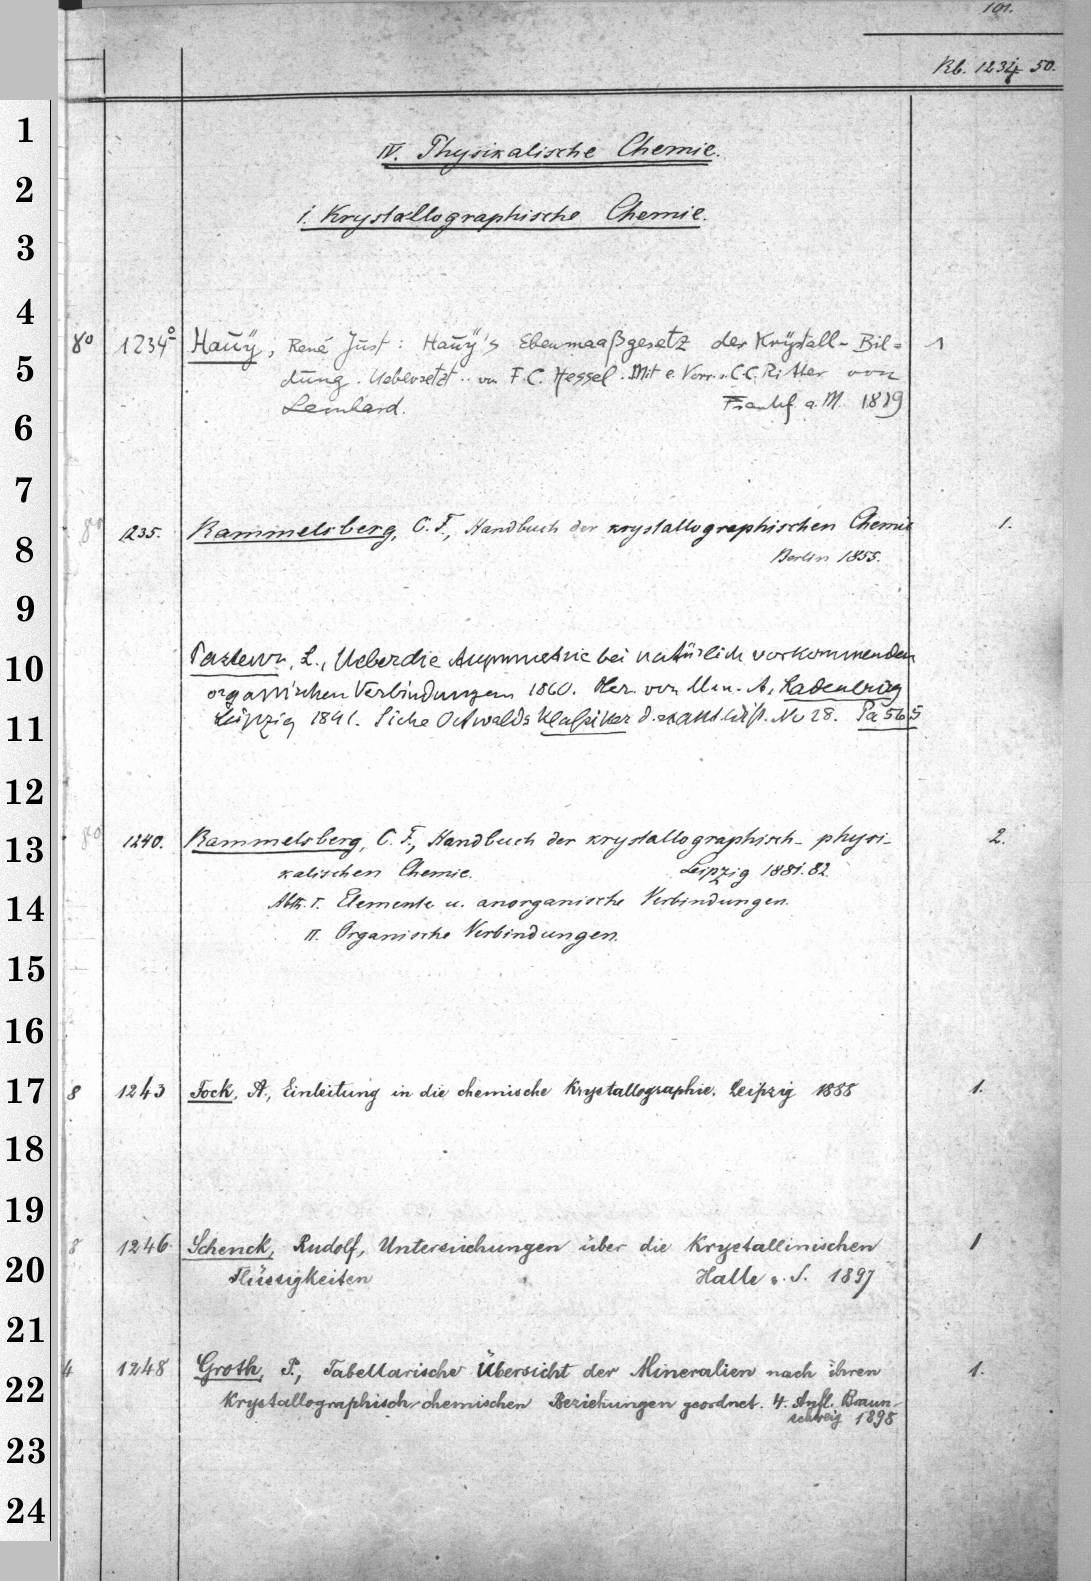 101.
Rb. 1234 50.
IV. Physikalische Chemie.
1. Krystallographische Chemie.
8° 1234° Haüy, René Just: Haüy's Ebenmaaßgesetz der Krystall-Bil= 1
dung. Uebersetzt .. von F.C. Hessel. Mit e. Vorr. v. C.C. Ritter von
Leonhard. Frankf. a. M. 1819
8° 1235. Rammelsberg, C. F., Handbuch der krystallographischen Chemie 1.
Berlin 1855.
Pasteur, L., Ueber die Asymmetrie bei natürlich vorkommenden
organischen Verbindungen 1860. Her. von A. Ladenburg
Leipzig 1891. Siehe Ostwalds Klassiker d. exakt. Wiss. No 28. Pa 565
8° 1240. Rammelsberg, C. F., Handbuch der krystallographisch- physi- 2.
kalischen Chemie. Leipzig 1881.82.
Abth. I. Elemente u. anorganische Verbindungen.
II. Organische Verbindungen.
8 1243 Fock, A., Einleitung in die chemische Krystallographie. Leipzig 1888 1.
8 1246 Schenck, Rudolf, Untersuchungen über die Krystallinischen 1
Flüssigkeiten Halle a. S. 1897
4 1248 Groth, P., Tabellarische Übersicht der Mineralien nach ihren 1.
Krystallographisch-chemischen Beziehungen geordnet. 4. Aufl. Braun-
schweig 1898
1
2
3
4
5
6
7
8
9
10
11
12
13
14
15
16
17
18
19
20
21
22
23
24